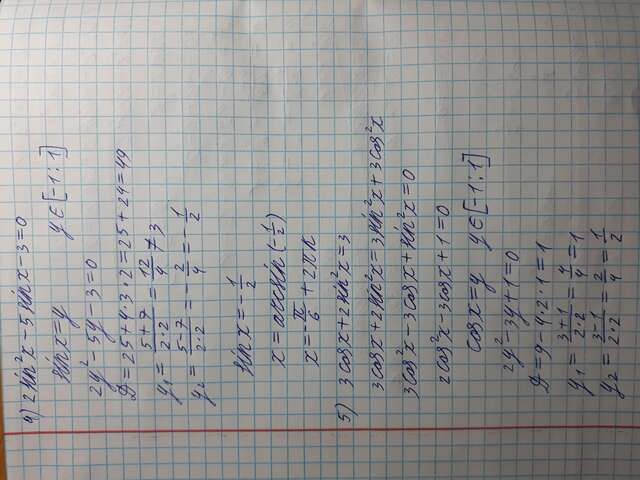 4) 2sin²x - 5sinx - 3 = 0
sinx = y y ∈ [-1; 1]
2y² - 5y - 3 = 0
D = 25 + 4·3·2 = 25 + 24 = 49
y₁ = (5+7)/(2·2) = 12/4 = 3
y₂ = (5-7)/(2·2) = -2/4 = -1/2
sinx = -1/2
x = arcsin(-1/2)
x = -π/6 + 2πk
5) 3cosx + 2sin²x = 3
3cosx + 2sin²x = 3sin²x + 3cos²x
3cos²x - 3cosx + sin²x = 0
2cos²x - 3cosx + 1 = 0
cosx = y y ∈ [-1; 1]
2y² - 3y + 1 = 0
D = 9 - 4·2·1 = 1
y₁ = (3+1)/(2·2) = 4/4 = 1
y₂ = (3-1)/(2·2) = 2/4 = 1/2